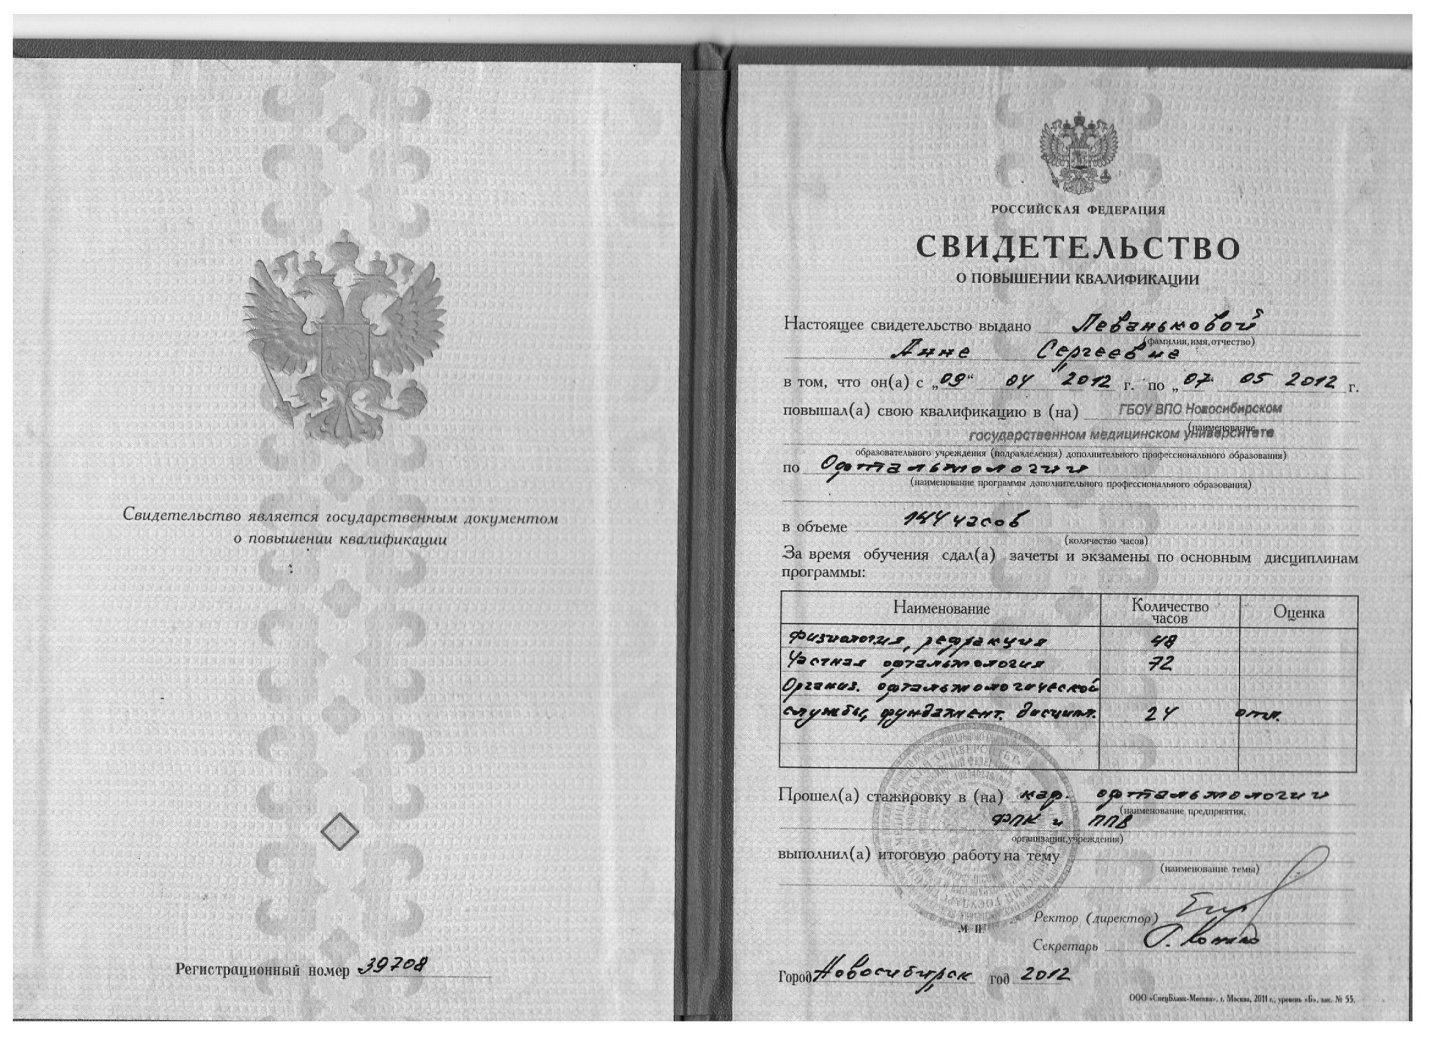 Свидетельство является государственным документом
о повышении квалификации
Регистрационный номер 39708
РОССИЙСКАЯ ФЕДЕРАЦИЯ
СВИДЕТЕЛЬСТВО
О ПОВЫШЕНИИ КВАЛИФИКАЦИИ
Настоящее свидетельство выдано Леваньковой
(фамилия, имя, отчество)
Анне Сергеевне
в том, что он(а) с „09“ 04 2012 г. по „07“ 05 2012 г.
повышал(а) свою квалификацию в (на) ГБОУ ВПО Новосибирском
(наименование
государственном медицинском университете
образовательного учреждения (подразделения) дополнительного профессионального образования)
по Офтальмологии
(наименование программы дополнительного профессионального образования)
в объеме 144 часов
(количество часов)
За время обучения сдал(а) зачеты и экзамены по основным дисциплинам
программы:
Наименование Количество часов Оценка
Физиология, рефракция 48
Частная офтальмология 72
Организ. офтальмологической
службы, фундамент. дисципл. 24 отл.
Прошел(а) стажировку в (на) каф. офтальмологии
(наименование предприятия,
ФПК и ППВ
организации, учреждения)
выполнил(а) итоговую работу на тему
(наименование темы)
Ректор (директор)
М П
Секретарь
Город Новосибирск год 2012
ООО «СпецБланк-Москва», г. Москва, 2011 г., уровень «Б», зак. № 55.